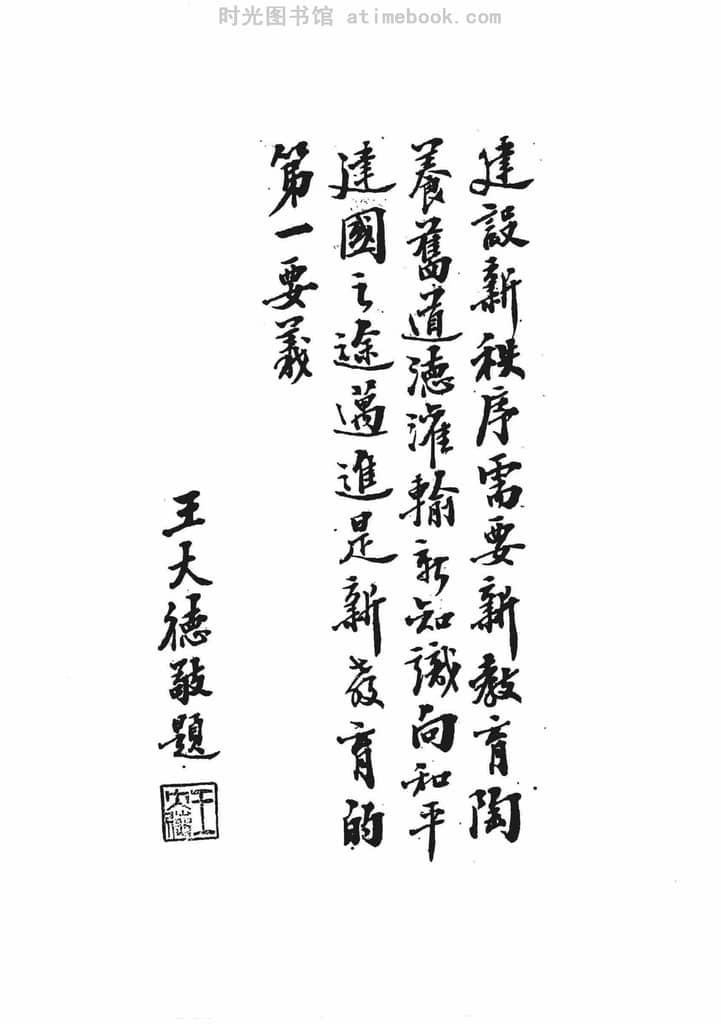 时光图书馆 atimebook.com
建設新秩序需要新教育陶
養舊道德灌輸新知識向和平
建國之途邁進是新教育的
第一要義
王大德敬題
王大德